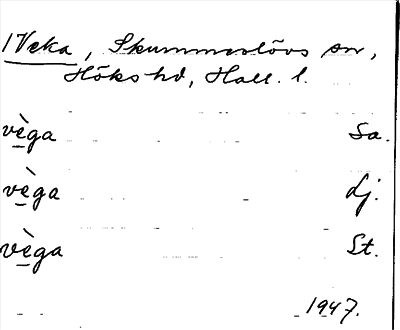 Veka, Skummeslövs sn,
Höks hd, Hall. l.
vèga Sa.
vèga Lj.
vèga St.
1947.